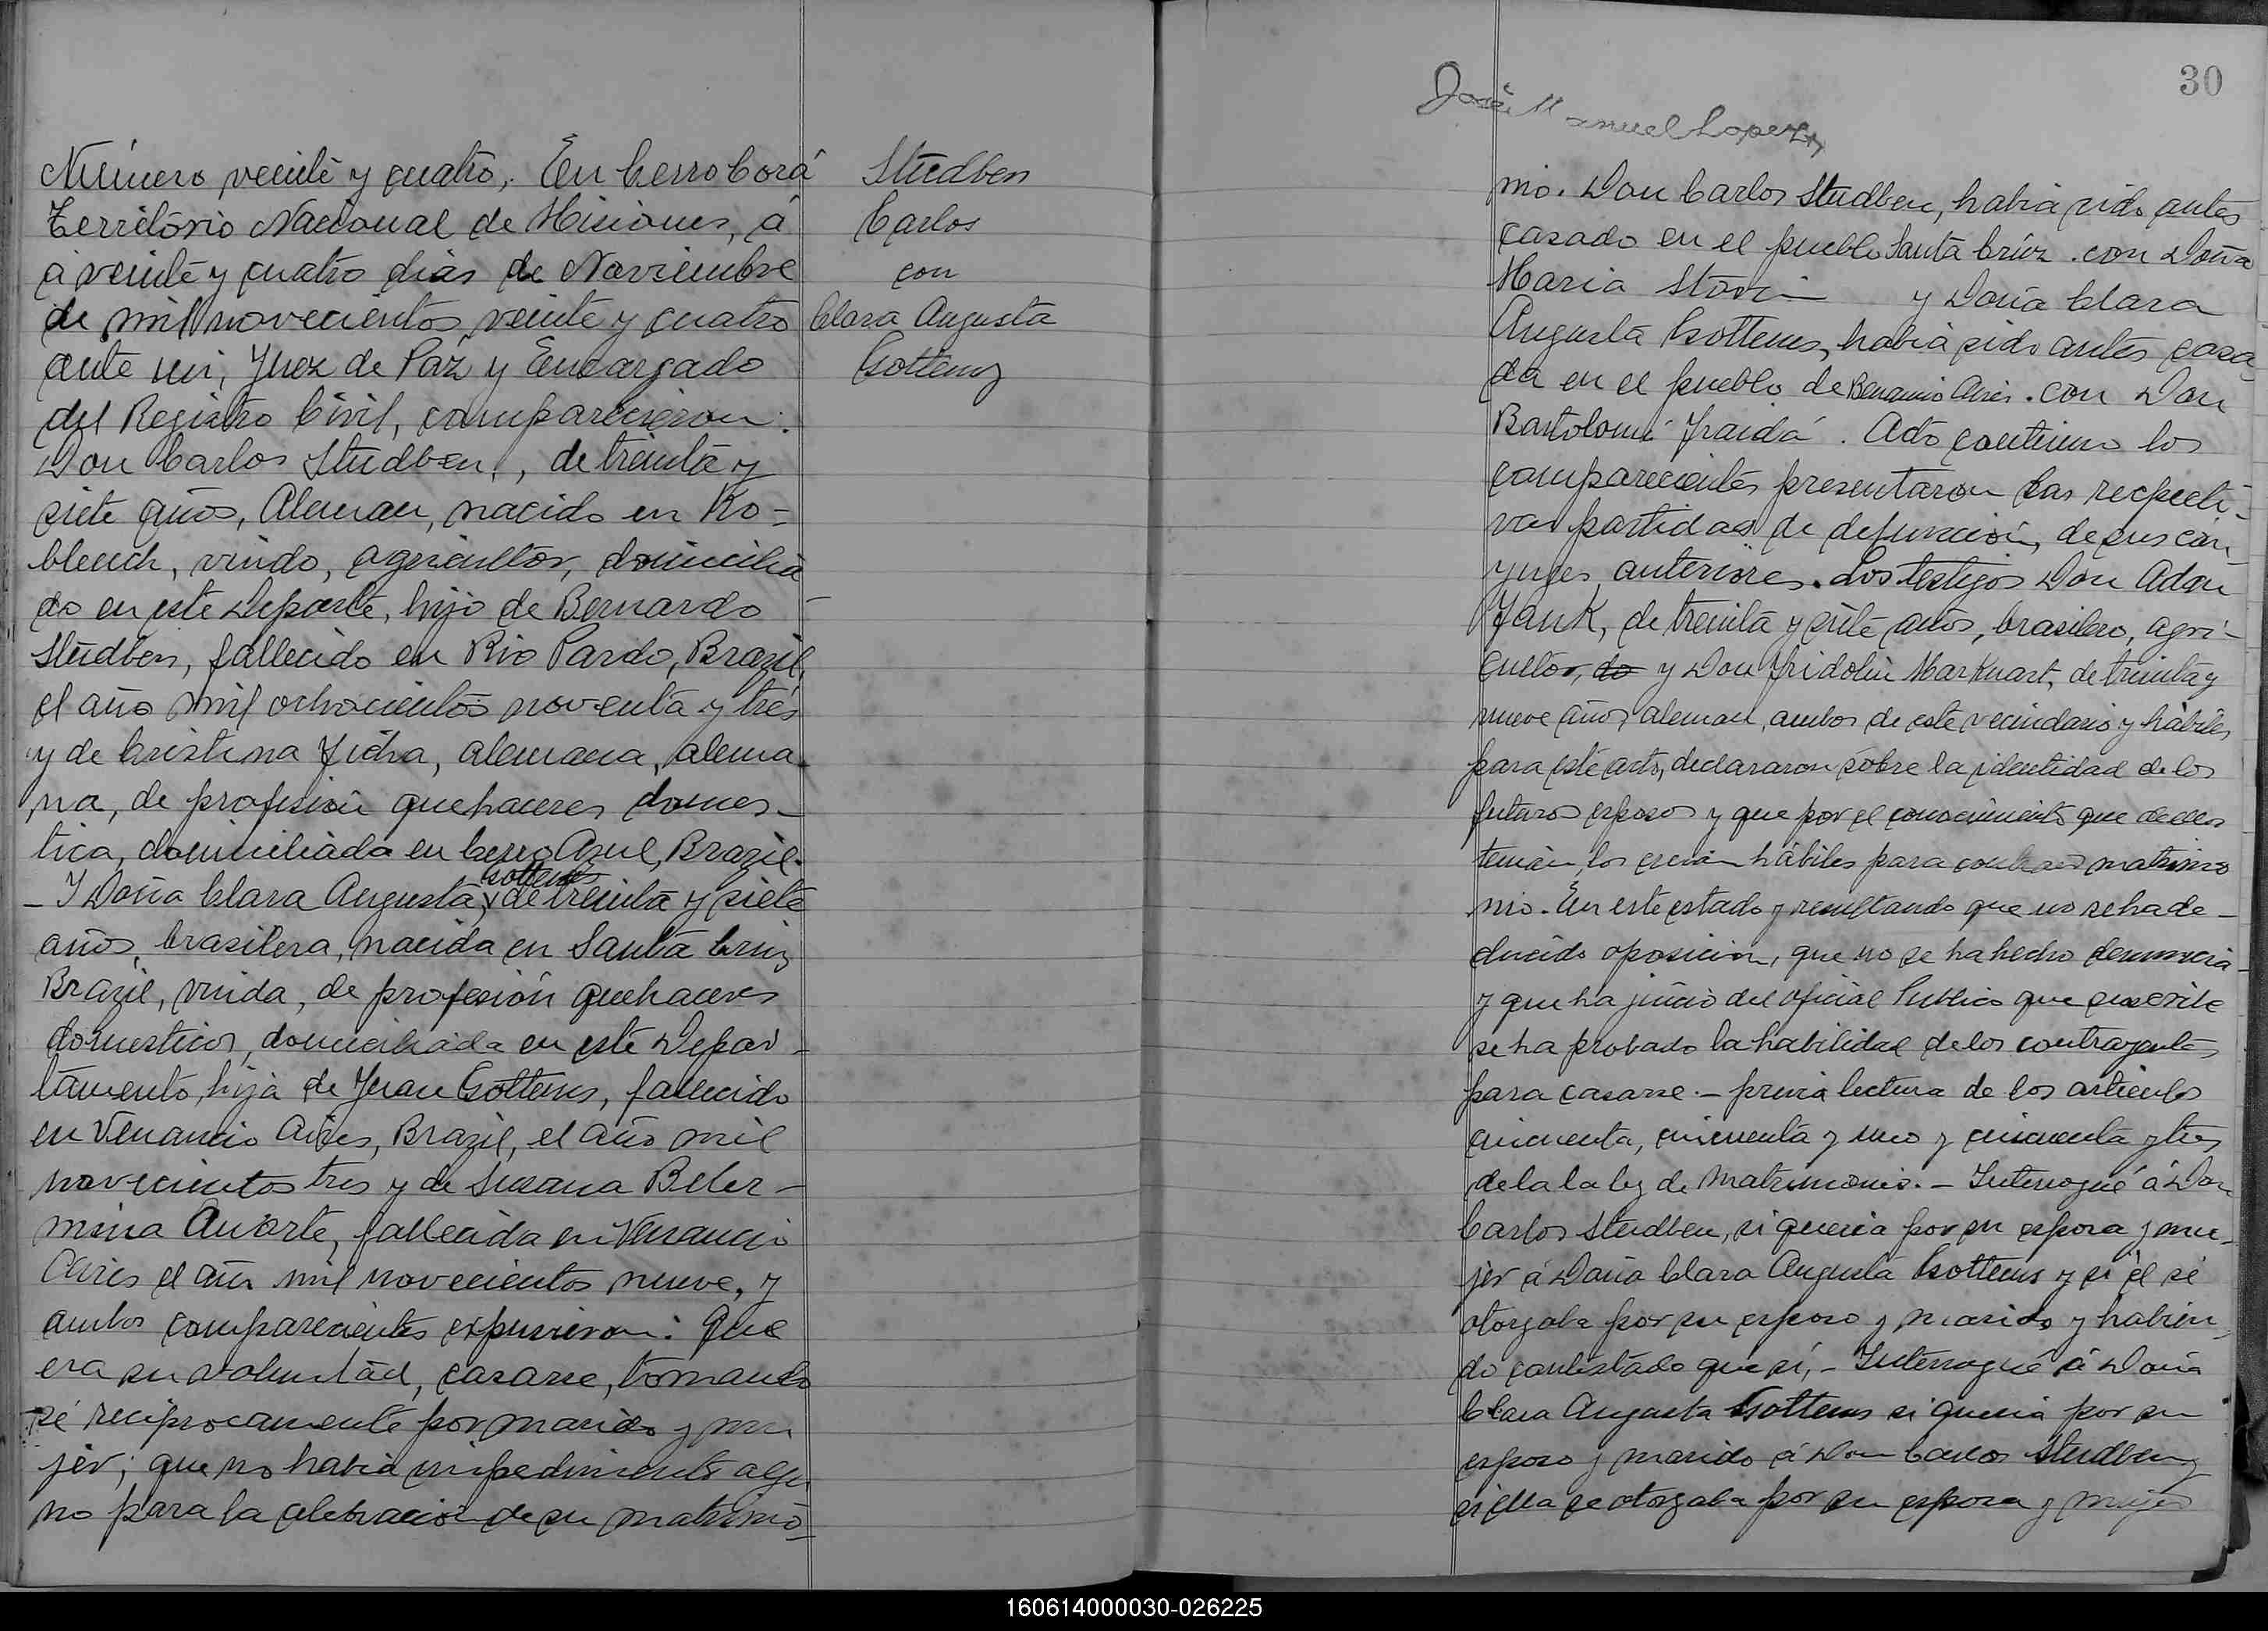 Número veinte y cuatro, En Cerro Corá
Território Nacional de Misiones, á
á veinte y cuatro dias de Noviembre
de mil novecientos veinte y cuatro
ante mi, Juez de Paz y Encargado
del Registro Civil, comparecieron:
Don Carlos Stüdben, de treinta y
siete años, Aleman, nacido en Ko-
blench, viudo, agricultor, domicilia
do en este Departe, hijo de Bernardo
Stüdben, fallecido en Rio Pardo, Brazil,
el año mil ochocientos noventa y trés
y de Cristina alemana, alema
na, de profesion quehaceres domes-
tica, domiciliada en Cerro Azul, Brazil.
Gottems
- Y Doña Clara Augusta, de treinta y siete
años, brasilera, nacida en Santa Cruz
Brazil, viuda, de profesión quehaceres
domesticos, domiciliada en este Depar-
tamento, hija de Juan Gottems, fallecido
en Venancio Aires, Brazil, el año mil
novecientos tres y de Susana
fallecida en Venancio
Aires el año mil novecientos nueve, y
ambos comparecientes expusieron: Que
era su voluntad, casarse, tomando
sé reciprocamente por marido y mu
jér; que no habia impedimento algu
no para la celebracion de su matrimo-
Stüdben
Carlos
con
Clara Augusta
Gottems
30
José Manuel Lopez
nio. Don Carlos Stüdben, habia sido antes
casado en el pueblo Santa Crúz. con Doña
Maria y Doña Clara
Augusta Gottems, habia sido antes casa
da en el pueblo de Aires. con Don
Bartolomé . Acto continuo los
comparecientes presentaron las respecti-
vas partidas de defunción, de sus cón
yuges anteriores. Los testigos Don Adan
Jank, de treinta y siete años, brasilero, agri-
cultor, do y Don Fridolin Markuart, de treinta y
nueve años aleman, ambos de este vecindario y hábiles
para este acto, declararon sobre la identidad de los
futuros esposos y que por el conocimiento que de ellos
tenian, los creian hábiles para contraer matrimo
nio. En este estado y resultando que no se ha de-
ducido oposicion, que no se ha hecho denuncia-
y que ha juicio del oficial Publico que suscribe
se ha probado la habilidad de los contrayentes
para casarse. - previa lectura de los articulos
cincuenta, cincuenta y uno y cincuenta y tres
de la la ley de Matrimonio. - Interrogué á Don
Carlos Stüdben, si queria por su esposa y mu-
jér á Doña Clara Augusta Gottems y si él sé
otorgaba por su esposo y marido y habien-
do contestado que sí, - Interrogué á Doña
Clara Augusta Gottems si queria por su
esposo y marido á Don Carlos Stüdben y
si ella se otorgaba por su esposa y mujer
160614000030-026225